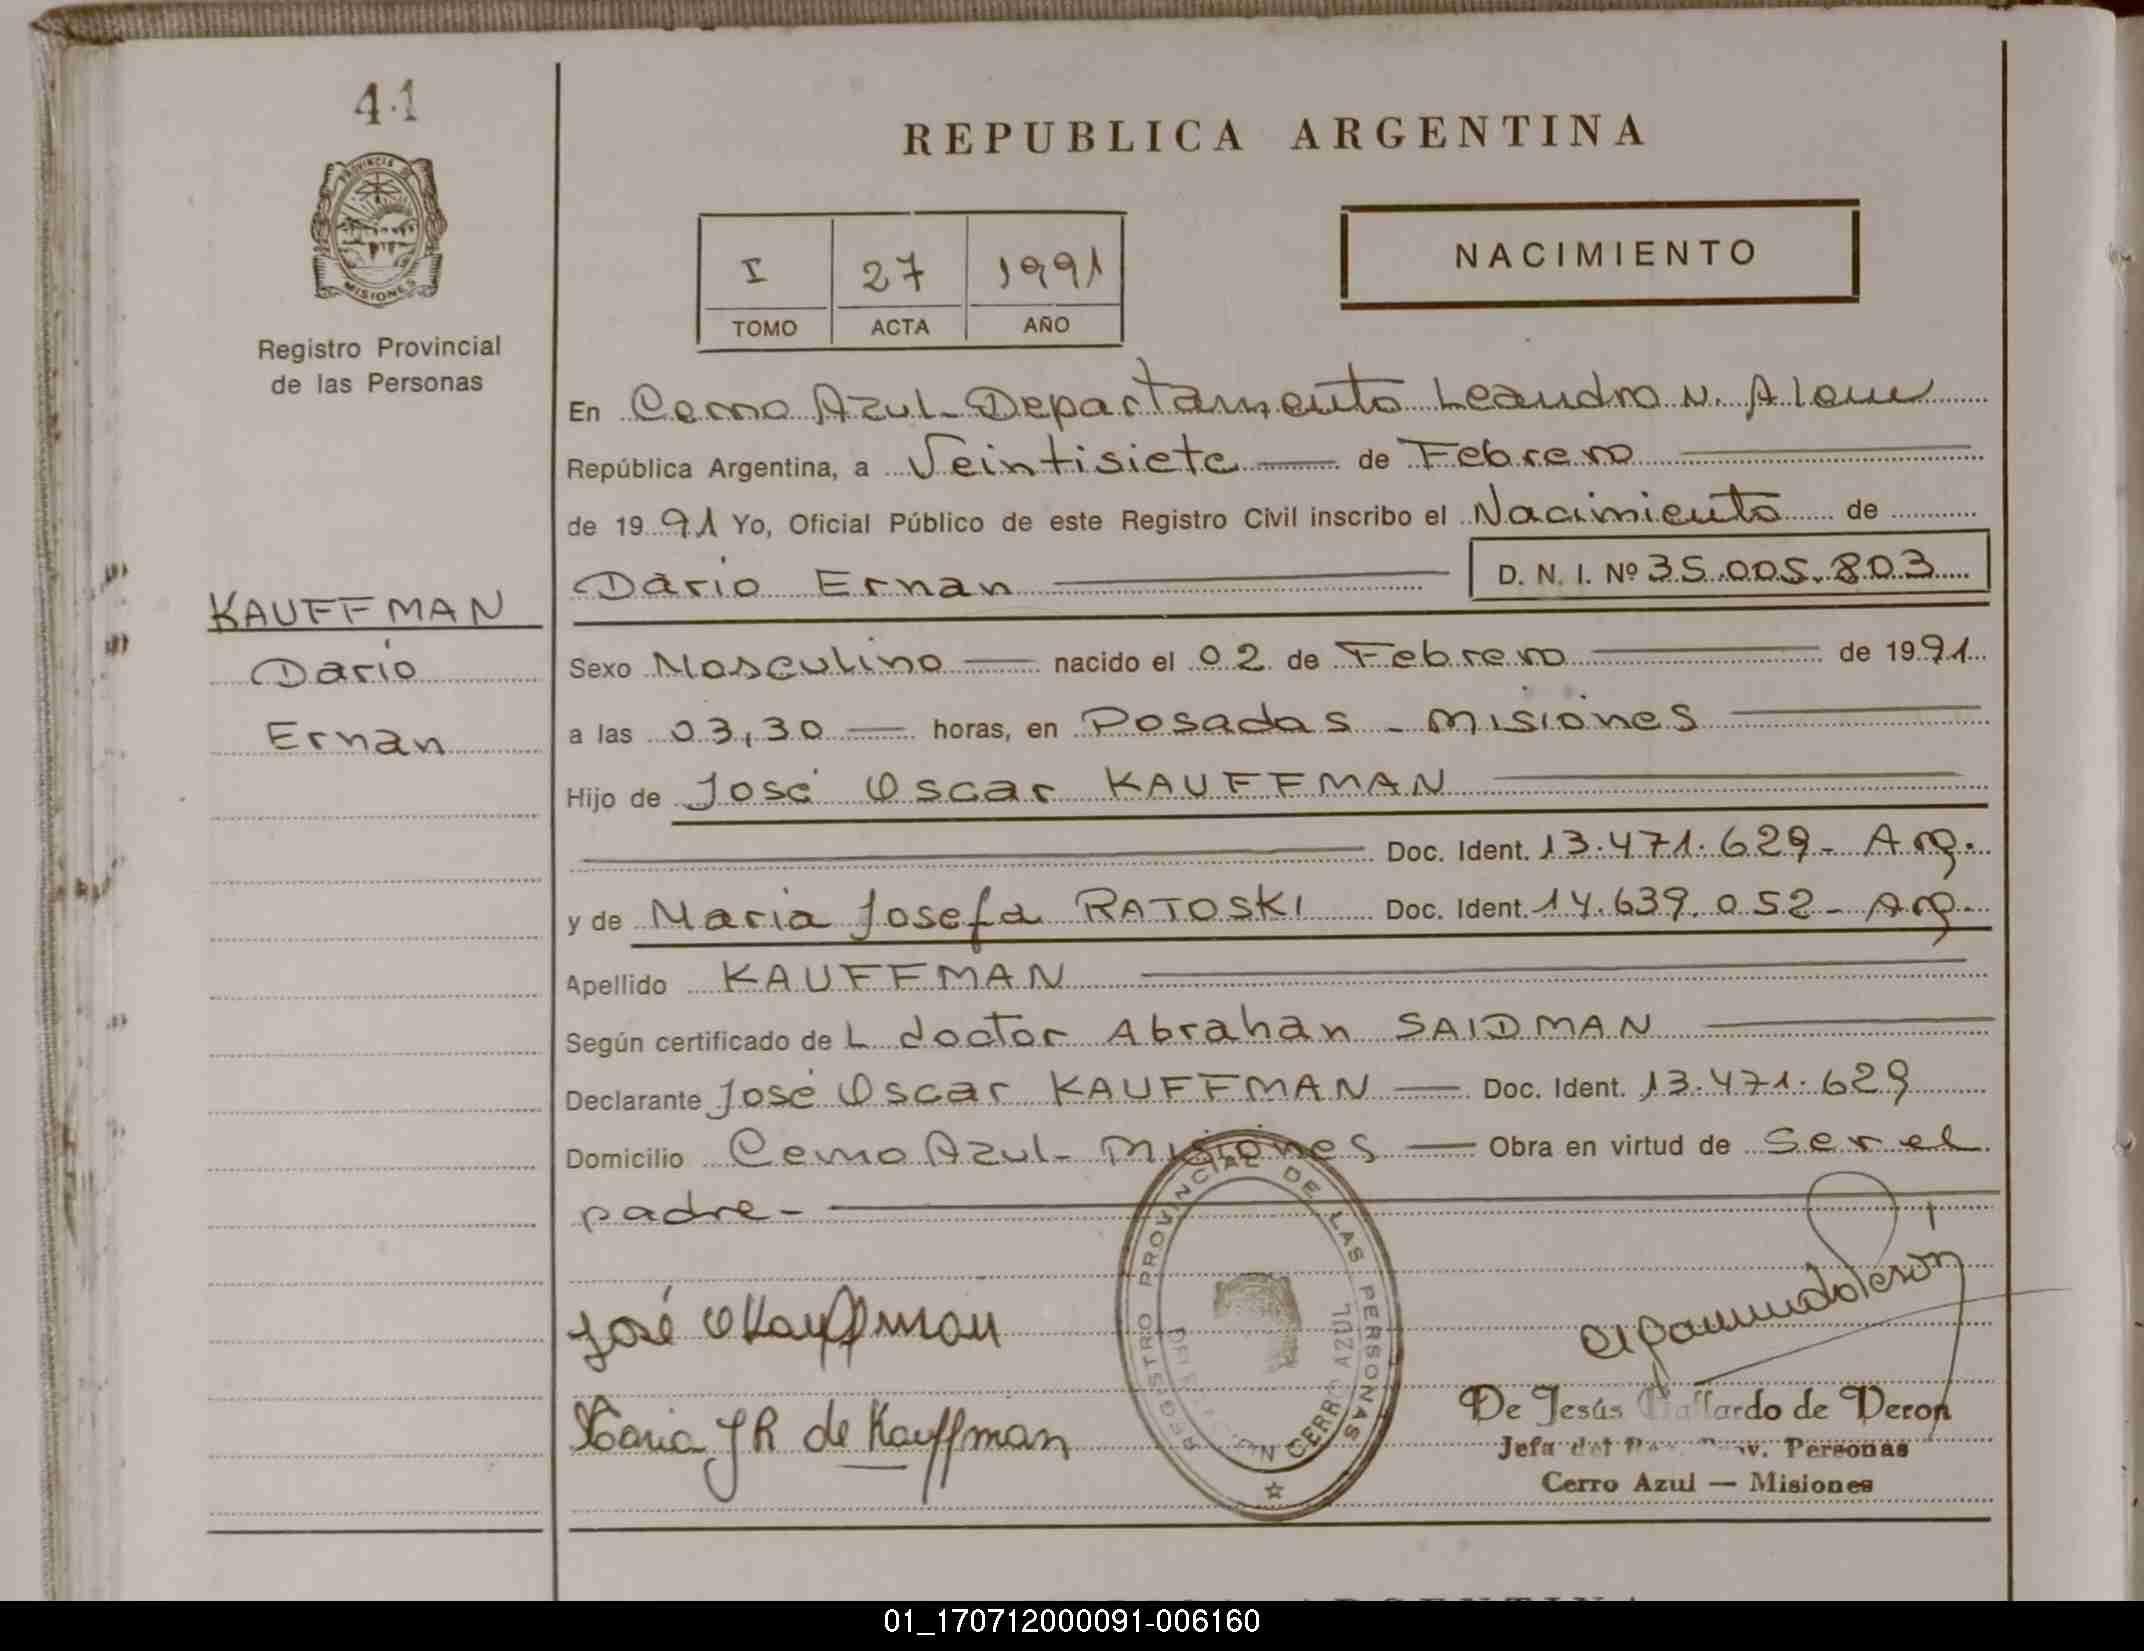 41
PROVINCIA DE
MISIONES
Registro Provincial
de las Personas
KAUFFMAN
Dario
Ernan
REPUBLICA ARGENTINA
I 27 1991
TOMO ACTA AÑO
NACIMIENTO
En Cerro Azul - Departamento Leandro N. Alem
República Argentina, a Veintisiete de Febrero
de 1991 Yo, Oficial Público de este Registro Civil inscribo el Nacimiento de
Dario Ernan D. N. I. Nº 35.005.803
Sexo Masculino nacido el 02 de Febrero de 1991
a las 03,30 horas, en Posadas - Misiones
Hijo de José Oscar KAUFFMAN
Doc. Ident. 13.471.629 - Arg.
y de Maria Josefa RATOSKI Doc. Ident. 14.639.052 - Arg.
Apellido KAUFFMAN
Según certificado de L doctor Abrahan SAIDMAN
Declarante José Oscar KAUFFMAN Doc. Ident. 13.471.629
Domicilio Cerro Azul - Misiones Obra en virtud de Ser el
padre -
REGISTRO PROVINCIAL DE LAS PERSONAS
CERRO AZUL
José O Kauffman
Maria J R de Kauffman
De Jesús Gallardo de Veron
Jefa del Personas
Cerro Azul — Misiones
ARGENTINA
01_170712000091-006160